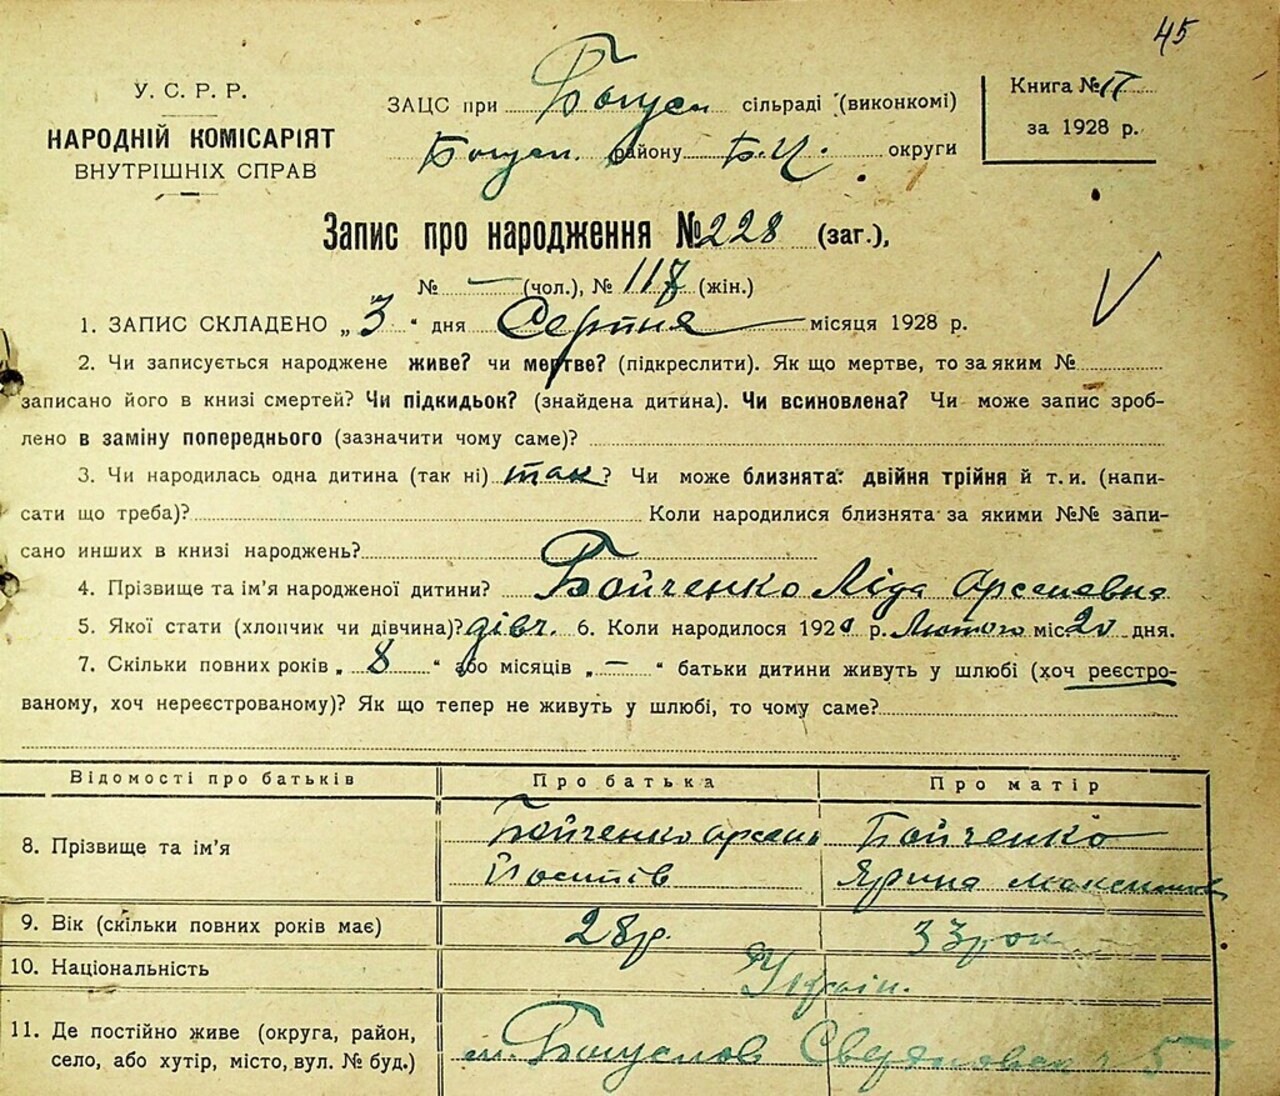 45
У. С. Р. Р.
НАРОДНІЙ КОМІСАРІЯТ
ВНУТРІШНІХ СПРАВ
ЗАЦС при Богусл сільраді (виконкомі)
Богусл. району Б.Ц. округи
Книга № 17
за 1928 р.
Запис про народження № 228 (заг.),
№ — (чол.), № 117 (жін.)
1. ЗАПИС СКЛАДЕНО „3" дня Серпня місяця 1928 р.
2. Чи записується народжене живе? чи мертве? (підкреслити). Як що мертве, то за яким №
записано його в книзі смертей? Чи підкидьок? (знайдена дитина). Чи всиновлена? Чи може запис зроб-
лено в заміну попереднього (зазначити чому саме)?
3. Чи народилась одна дитина (так ні) так? Чи може близнята: двійня трійня й т. и. (напи-
сати що треба)? Коли народилися близнята за якими №№ запи-
сано инших в книзі народжень?
4. Прізвище та ім'я народженої дитини? Бойченко Ліда Арсенівна
5. Якої статі (хлопчик чи дівчина)? дівч. 6. Коли народилося 192 р. Лютого міс. 20 дня.
7. Скільки повних років „8" або місяців „—" батьки дитини живуть у шлюбі (хоч реєстро-
ваному, хоч нереєстрованому)? Як що тепер не живуть у шлюбі, то чому саме?
Відомості про батьків Про батька Про матір
8. Прізвище та ім'я Бойченко Арсень Бойченко
Йосипів Ярина Максимов
9. Вік (скільки повних років має) 28 р. 33 рок
10. Національність Україн.
11. Де постійно живе (округа, район,
село, або хутір, місто, вул. № буд.) м. Богуслов 5